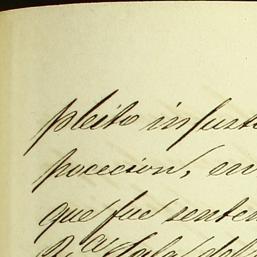 pleito injusto
pocecion, en
que fue senten
R.ª Sala del